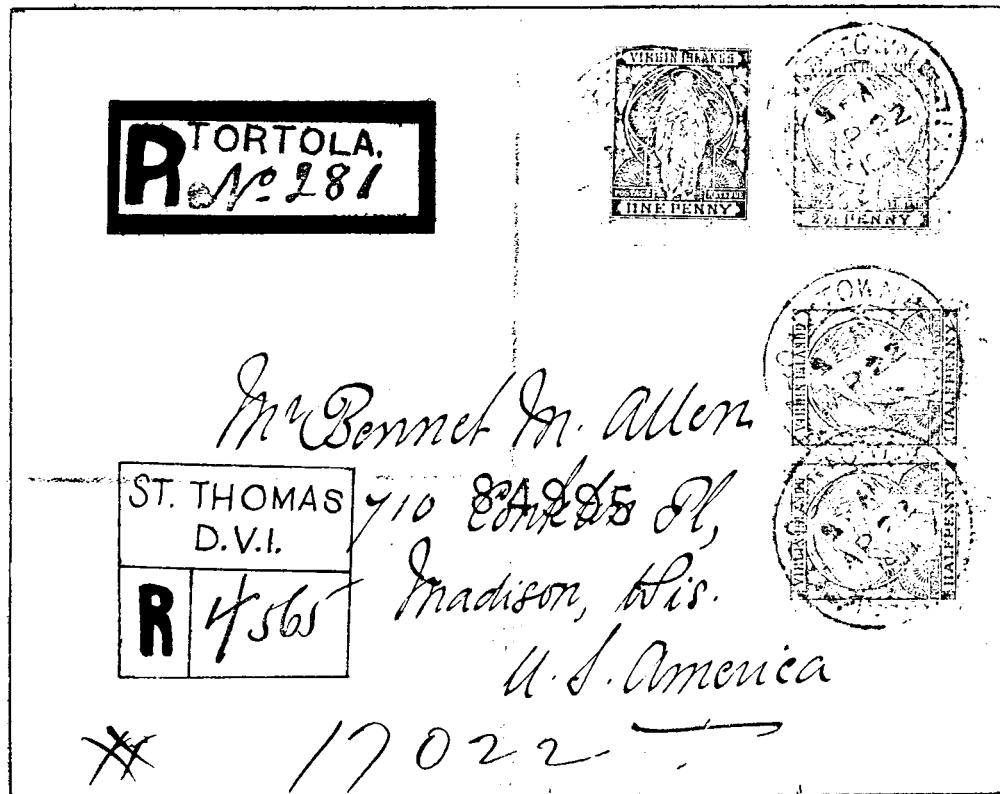 TORTOLA.
R No 281
VIRGIN ISLANDS
ONE PENNY
VIRGIN ISLANDS
2½ PENNY
TOWN
VIRGIN ISLANDS
HALFPENNY
VIRGIN ISLANDS
HALFPENNY
Mr Bennet M. Allen
710 Pl,
84995
Madison, Wis.
U. S. America
ST. THOMAS
D.V.I.
R 4565
17022